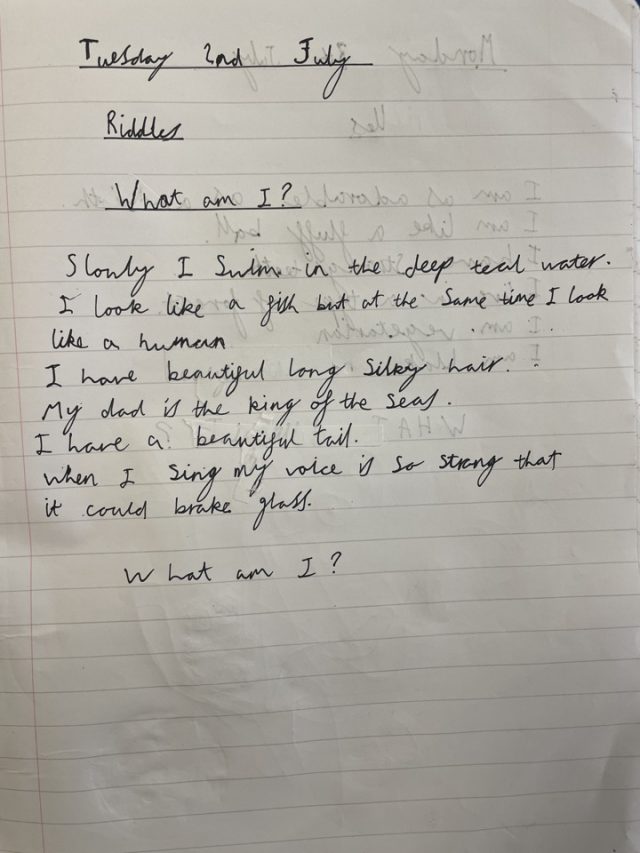 Tuesday 2nd July
Riddles
What am I?
Slowly I Swim in the deep teal water.
I look like a fish but at the Same time I look
like a human
I have beautiful long Silky hair.
My dad is the king of the Seas.
I have a beautiful tail.
When I Sing my voice is So strong that
it could brake glass.
What am I?